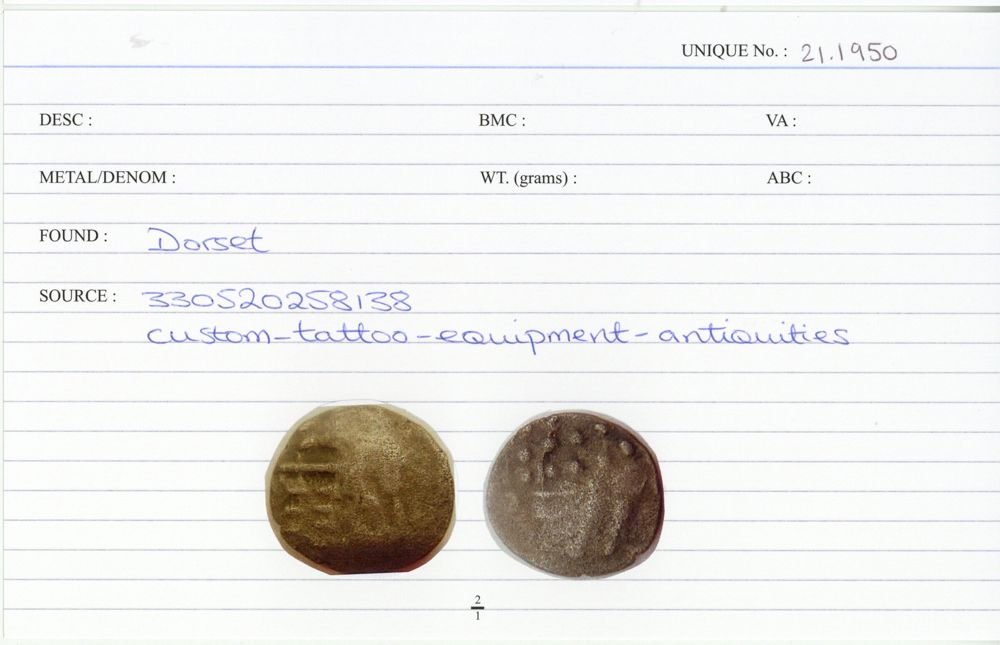 UNIQUE No. : 21.1950
DESC : BMC : VA :
METAL/DENOM : WT. (grams) : ABC :
FOUND : Dorset
SOURCE : 330520258138
custom-tattoo-equipment-antiquities
2
1